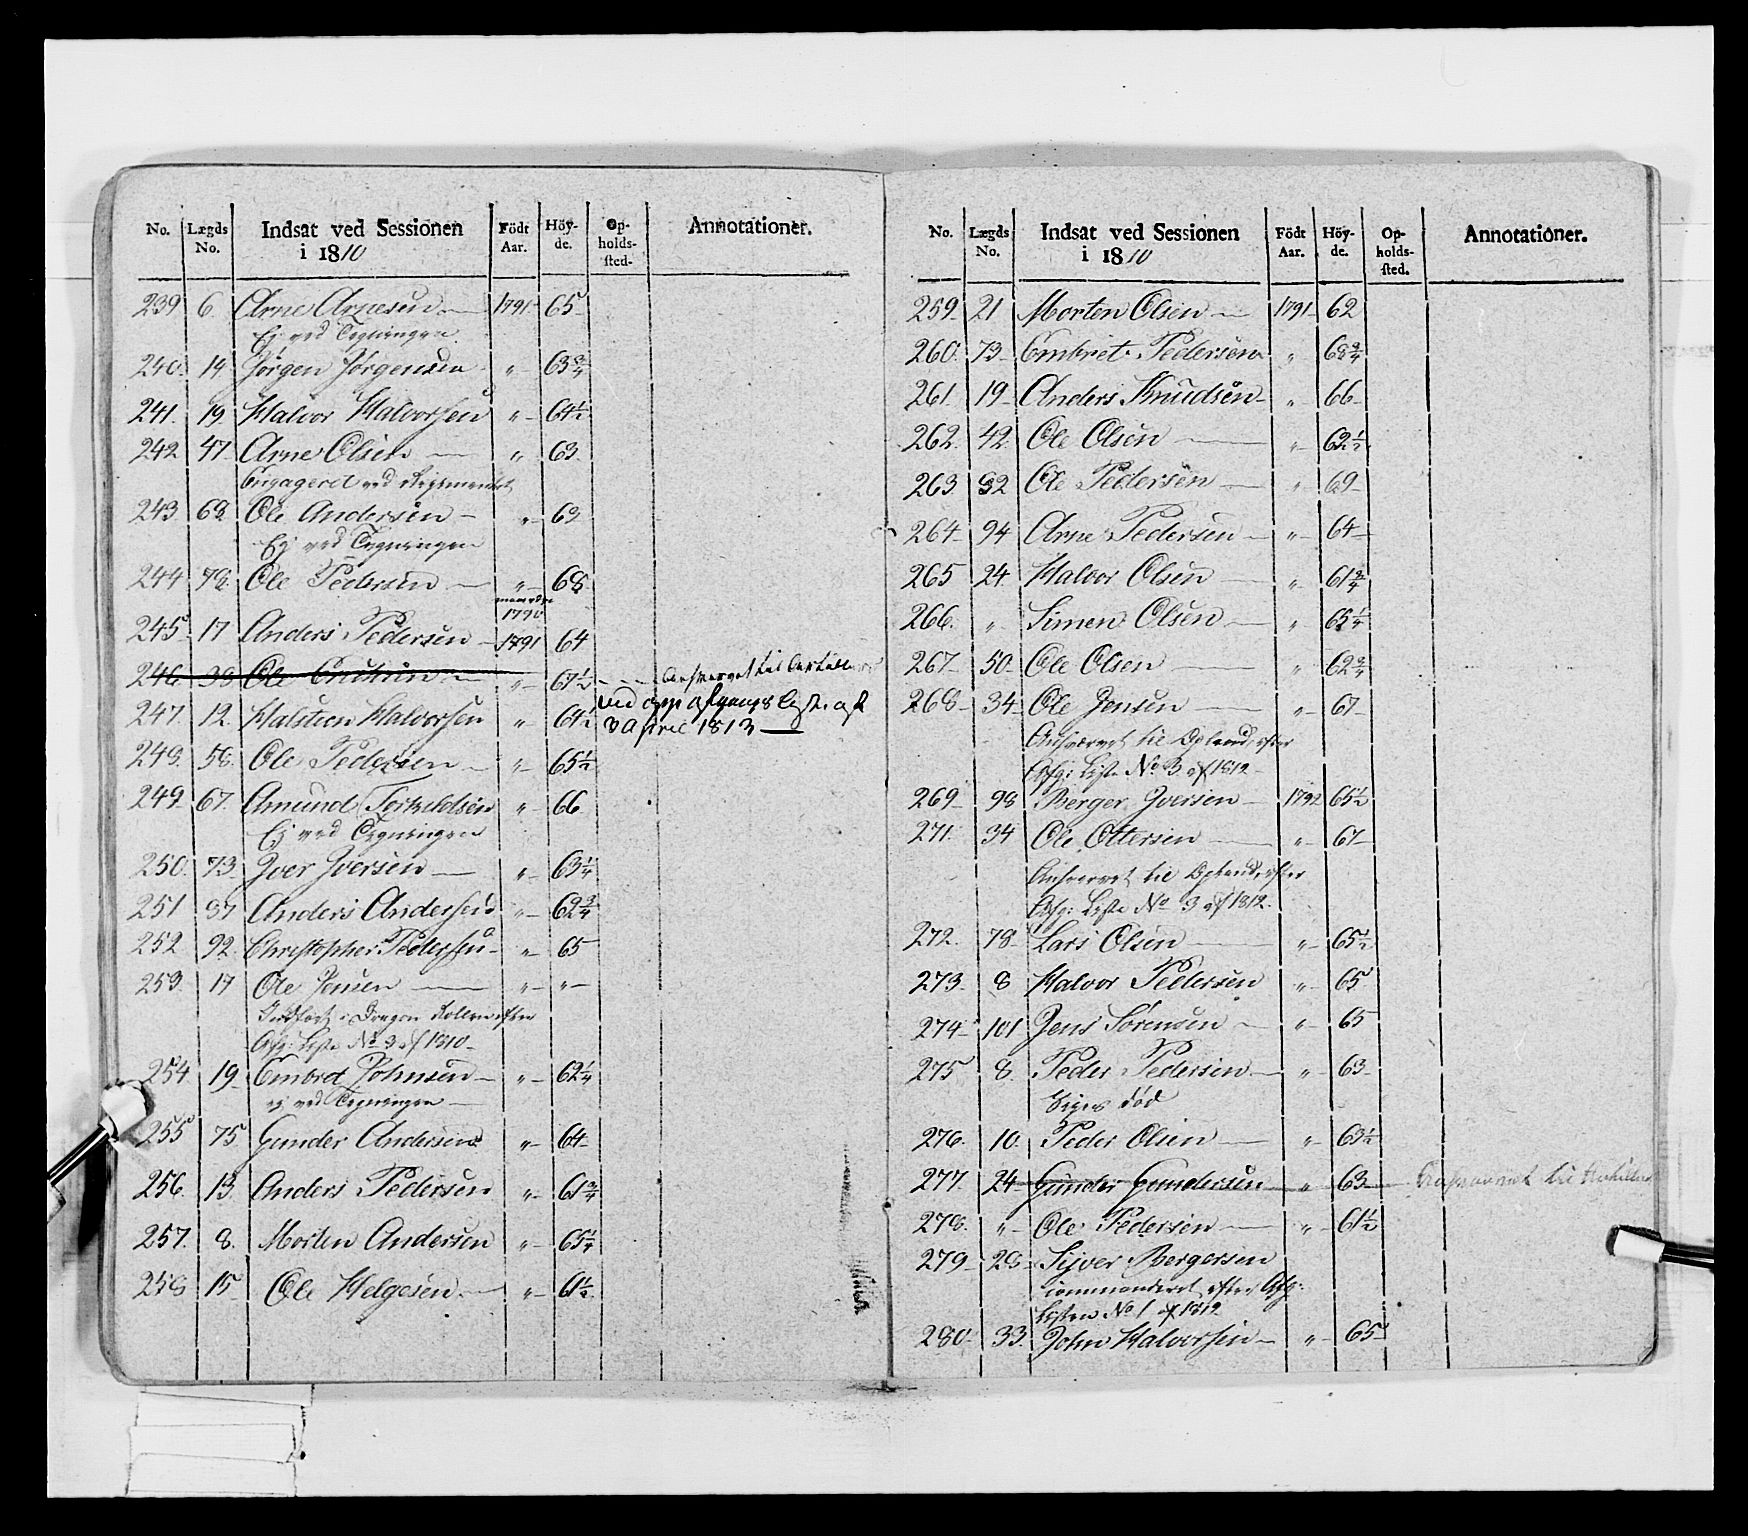 No. Lægds No. Indsat ved Sessionen i 1810 Födt Aar. Höy-de. Op-holds-sted. Annotationer.
239 6. Arne Arnesen 1791 65
Ej ved Tegningen.
240. 14 Jørgen Jørgensen " 63 3/4
241. 19. Halvor Halvorsen " 64 1/2
242 47. Arne Olsen " 63.
Engagerd ved Regimentet
243 69. Ole Andersen " 62
Ej ved Tegningen
244 78. Ole Pedersen " 68
1790
245. 17 Anders Pedersen 1791 64
246 38 Ole " 67 1/2 Anhvervet til
247. 12. Halsteen Halvorsen " 64 1/2 ved
3 April 1813
248. 58. Ole Pedersen " 65 1/2
249. 67. Amund Torkildsen " 66
Ej ved Tegningen
250. 73 Iver Iversen " 63 1/4
251 87 Anders Andersen " 62 3/4
252. 92. Christopher Pedersen " 65
253. 17 Ole Jensen " "
Indført i Dragon Rollen efter
Afg: Liste No 3 af 1810
254. 19 Embret Johnsen " 62 1/4
ej ved Tegningen
255 75 Gunder Andersen " 64
256. 13. Anders Pedersen " 61 3/4
257. 8. Morten Andersen " 65 1/4
258 15 Ole Helgesen " 61 1/2
No. Lægds No. Indsat ved Sessionen i 1810 Födt Aar. Höy-de. Op-holds-sted. Annotationer.
259 21 Morten Olsen 1791 62
260. 73 Embret Pedersen " 68 3/4
261. 19 Anders Knudsen " 66
262. 42 Ole Olsen " 62 1/2
263. 92 Ole Pedersen " 69
264 94 Arne Pedersen " 64
265 24 Halvor Olsen " 61 3/4
266. " Simen Olsen " 65 1/4
267 50 Ole Olsen " 62 3/4
268 34 Ole Jensen " 67
Anhvervet til Opland, efter
Afg: Liste No 3 af 1812
269 98 Berger Iversen 1792 65 1/2
271. 34 Ole Ottersen " 67
Anhvervet til Opland, efter
Afg: Liste No 3 af 1812.
272. 78 Lars Olsen " 65 1/2
273. 8 Halvor Pedersen " 65
274 101 Jens Sørensen " 65
275 8. Peder Pedersen " 63
Siges død
276. 10. Peder Olsen " 63 1/2
277. 24 Gunder Gundersen " 63 til
278. " Ole Pedersen " 61 1/2
279 28 Sijver Bergersen
commanderet efter Afg:
Listen No 1 af 1812
280. 33. John Halvorsen " 65